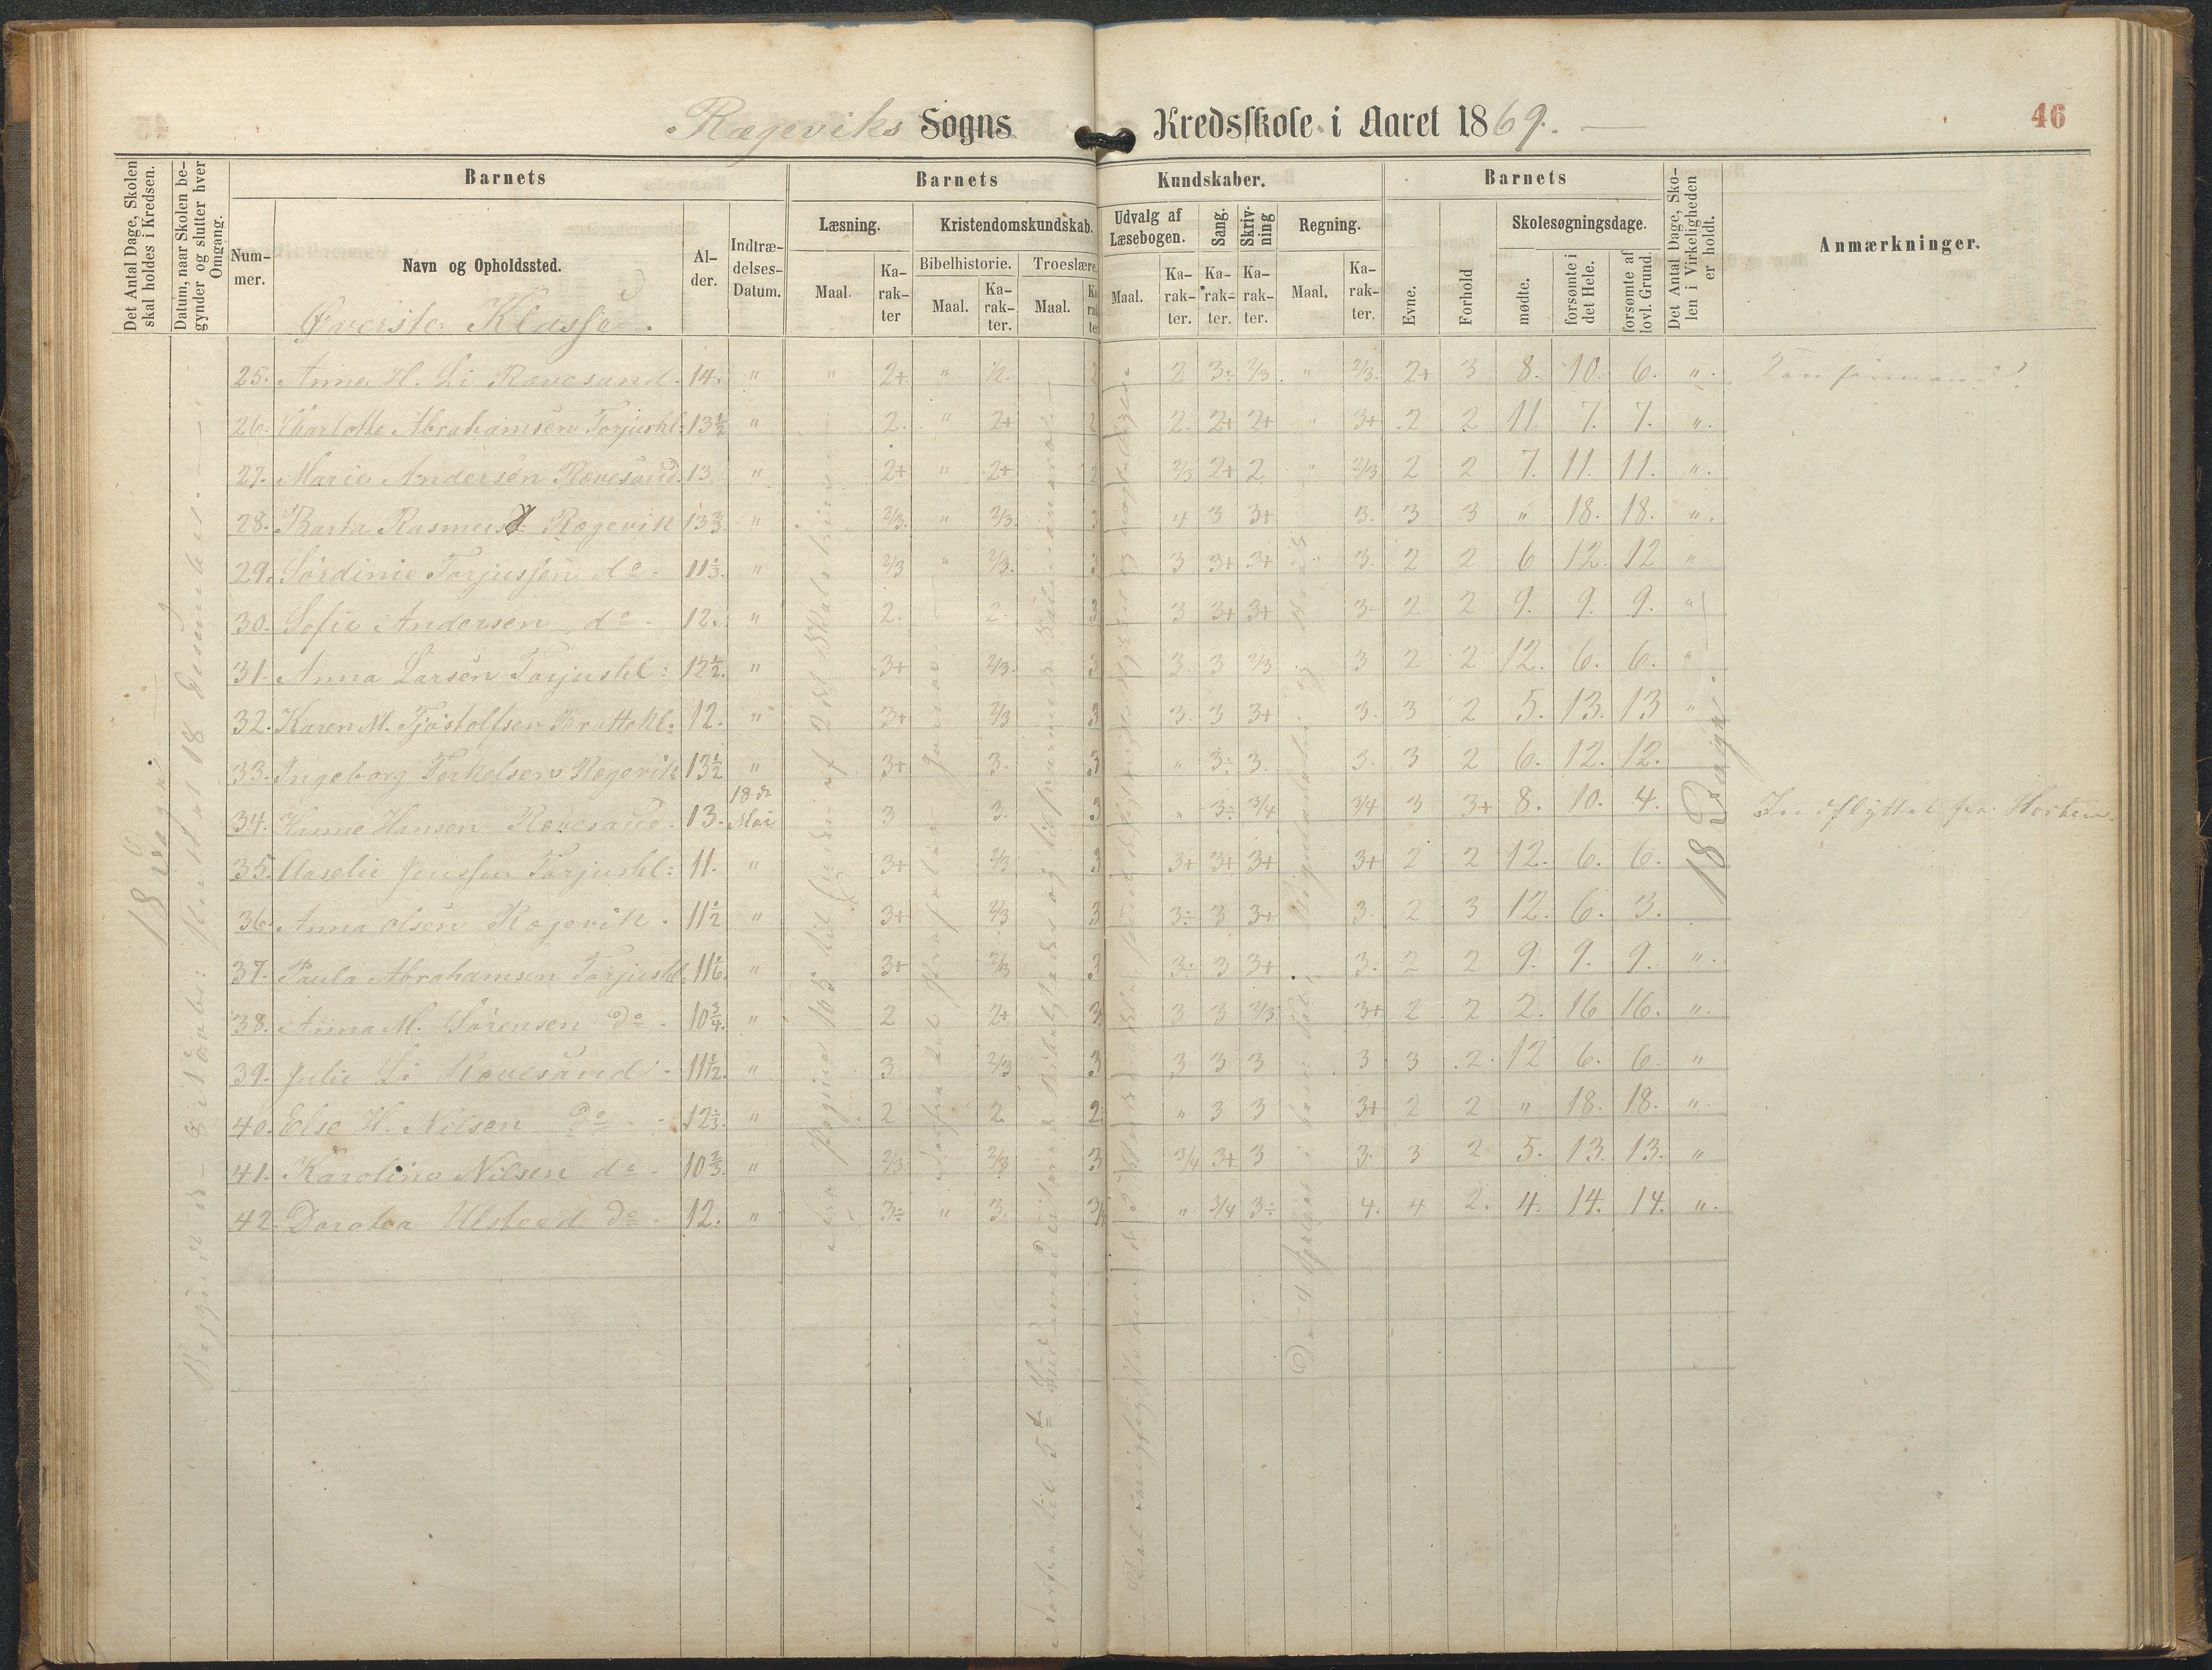 Rægeviks Sogns Kredsskole i Aaret 1869. 46
Det Antal Dage, Skolen skal holdes i Kredsen.
Datum, naar Skolen begynder og slutter hver Omgang.
Barnets Barnets Kundskaber. Barnets
Det Antal Dage, Skolen i Virkeligheden er holdt.
Anmærkninger.
Nummer. Navn og Opholdssted. Alder. Indtrædelses-Datum.
Læsning. Kristendomskundskab. Udvalg af Læsebogen. Sang. Skrivning Regning. Evne. Forhold Skolesøgningsdage.
Bibelhistorie. Troeslære.
Maal. Karakter Maal. Karakter. Maal. Karakter Maal. Karakter. Karakter. Karakter. Maal. Karakter. mødte. forsømte i det Hele. forsømte af lovl. Grund.
Øverste Klasse.
25. Anna H. Li Rævesand. 14. " " 2+ " ½. 2 2 3÷ 2/3 " 2/3. 2+ 3 8. 10. 6. ".
26. Charlotte Abrahamsen Torjushl: 13½ " 2. " 2+ 2 2. 2+ 2+ " 3+ 2 2 11. 7. 7. ".
27. Marie Andersen Rævesand. 13 " 2+ " 2+ 2 2/3 2+ 2 " 2/3 2 2 7. 11. 11. ".
28. Berta Rasmusd: Rægevik 13⅔. " 2/3. " 2/3. 3 4 3 3+ 3. 3 3 " 18. 18. ".
29. Sørdinie Torjussen do. 11⅔. " 2/3 " 2/3. 3 3 3+ 3+ " 3. 2 2 6 12. 12 "
30. Sofie Andersen do. 12. " 2. 2. 3 3 3+ 3+ 3- 2 2 9. 9. 9. "
31. Anna Larsen Torjushl: 12½. " 3+ 2/3. 3 3. 3 2/3 3 2 2 12. 6. 6. "
32. Karen M. Tjøstolfsen Brattekl: 12. " 3+ 2/3 3 3. 3 3+ 3. 3 2 5. 13. 13 "
33. Ingeborg Terkelsen Rægevik 13½ " 3+ 3. 3 " 3÷ 3. 3. 3 2 6. 12. 12.
34. Hanne Hansen Rævesand. 13. 18de Mai 3 3. 3 " 3÷ 3/4 3/4 3 3+ 8. 10. 4. Indflyttet fra Horten.
35. Aaselie Jenssen Torjushl: 11. " 3+ 2/3 3 3+ 3+ 3+ 3+ 2 2 12. 6. 6.
36. Anna Olsen Rægevik. 11½ " 3+ 2/3 3 3÷ 3 3+ 3. 2 3 12. 6. 3.
37. Paula Abrahamsen Torjushl. 11⅙. " 3+ 2/3 3 3÷ 3 3+ 3. 2 2 9. 9. 9. ".
38. Anna M. Sørensen do. 10¾. " 2 2+ 3 3 3 2/3 3+ 2 2 2. 16 16. ".
39. Julie Li Rævesand. 11½. " 3 2/3 3 3 3 3 3 3 2 12 6. 6. "
40. Else H. Nilsen do. 12⅔. " 2 2. 2 " 3 3 3+ 2 2 " 18. 18. ".
41. Karoline Nilsen do. 10⅔. " 2/3. 2/3 3 3/4 3+ 3 3. 3 2 5. 13. 13. "
42. Dorotea Ulsteed do. 12. " 3÷ " 3. 3/4 " 3/4 3÷ 4. 4 2. 4. 14. 14. ".
18 Dage.
18 Dage.